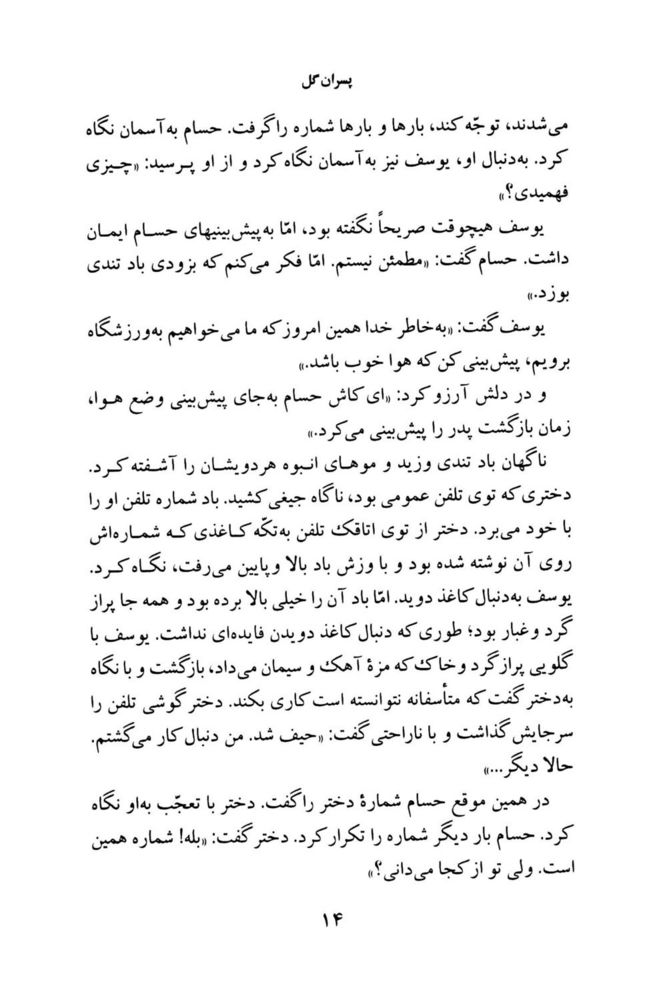 پسران گل
می‌شدند، توجّه کند، بارها و بارها شماره را گرفت. حسام به‌آسمان نگاه
کرد. به‌دنبال او، یوسف نیز به‌آسمان نگاه کرد و از او پرسید: «چیزی
فهمیدی؟»
یوسف هیچوقت صریحاً نگفته بود، امّا به‌پیش‌بینیهای حسام ایمان
داشت. حسام گفت: «مطمئن نیستم. امّا فکر می‌کنم که بزودی باد تندی
بوزد.»
یوسف گفت: «به‌خاطر خدا همین امروز که ما می‌خواهیم به‌ورزشگاه
برویم، پیش‌بینی کن که هوا خوب باشد.»
و در دلش آرزو کرد: «ای کاش حسام به‌جای پیش‌بینی وضع هوا،
زمان بازگشت پدر را پیش‌بینی می‌کرد.»
ناگهان باد تندی وزید و موهای انبوه هردویشان را آشفته کرد.
دختری که توی تلفن عمومی بود، ناگاه جیغی کشید. باد شماره تلفن او را
با خود می‌برد. دختر از توی اتاقک تلفن به‌تکّه کاغذی که شماره‌اش
روی آن نوشته شده بود و با وزش باد بالا و پایین می‌رفت، نگاه کرد.
یوسف به‌دنبال کاغذ دوید. امّا باد آن را خیلی بالا برده بود و همه جا پراز
گرد و غبار بود؛ طوری که دنبال کاغذ دویدن فایده‌ای نداشت. یوسف با
گلویی پراز گرد و خاک که مزهٔ آهک و سیمان می‌داد، بازگشت و با نگاه
به‌دختر گفت که متأسفانه نتوانسته است کاری بکند. دختر گوشی تلفن را
سرجایش گذاشت و با ناراحتی گفت: «حیف شد. من دنبال کار می‌گشتم.
حالا دیگر...»
در همین موقع حسام شمارهٔ دختر را گفت. دختر با تعجّب به‌او نگاه
کرد. حسام بار دیگر شماره را تکرار کرد. دختر گفت: «بله! شماره همین
است. ولی تو از کجا می‌دانی؟»
۱۴